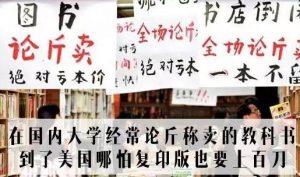 图书
论斤卖
绝对亏本价
全场论斤
绝对亏本
书店倒
全场论
一本不
在国内大学经常论斤称卖的教科书
到了美国哪怕复印版也要上百刀